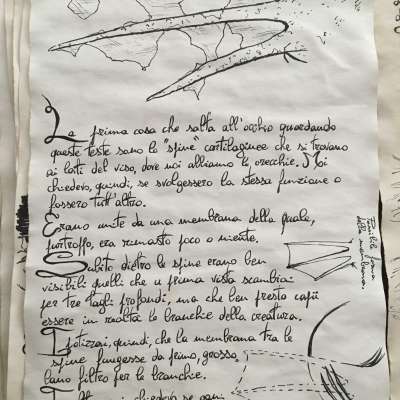 La prima cosa che salta all'occhio guardando
queste teste sono le "spine" cartilaginee che si trovano
ai lati del viso, dove noi abbiamo le orecchie. Mi
chiedevo, quindi, se svolgessero la stessa funzione o
fossero tutt'altro.
Erano unite da una membrana della quale,
purtroppo, era rimasto poco o niente.
Subito dietro le spine erano ben
visibili quelli che a prima vista scambiai
per tre tagli profondi, ma che ben presto capii
essere in realtà le branchie della creatura.
Ipotizzai, quindi, che la membrana tra le
spine fungesse da primo, grosso
lano filtro per le branchie.
chiedevo se ogni
Possibile forma
della membrana